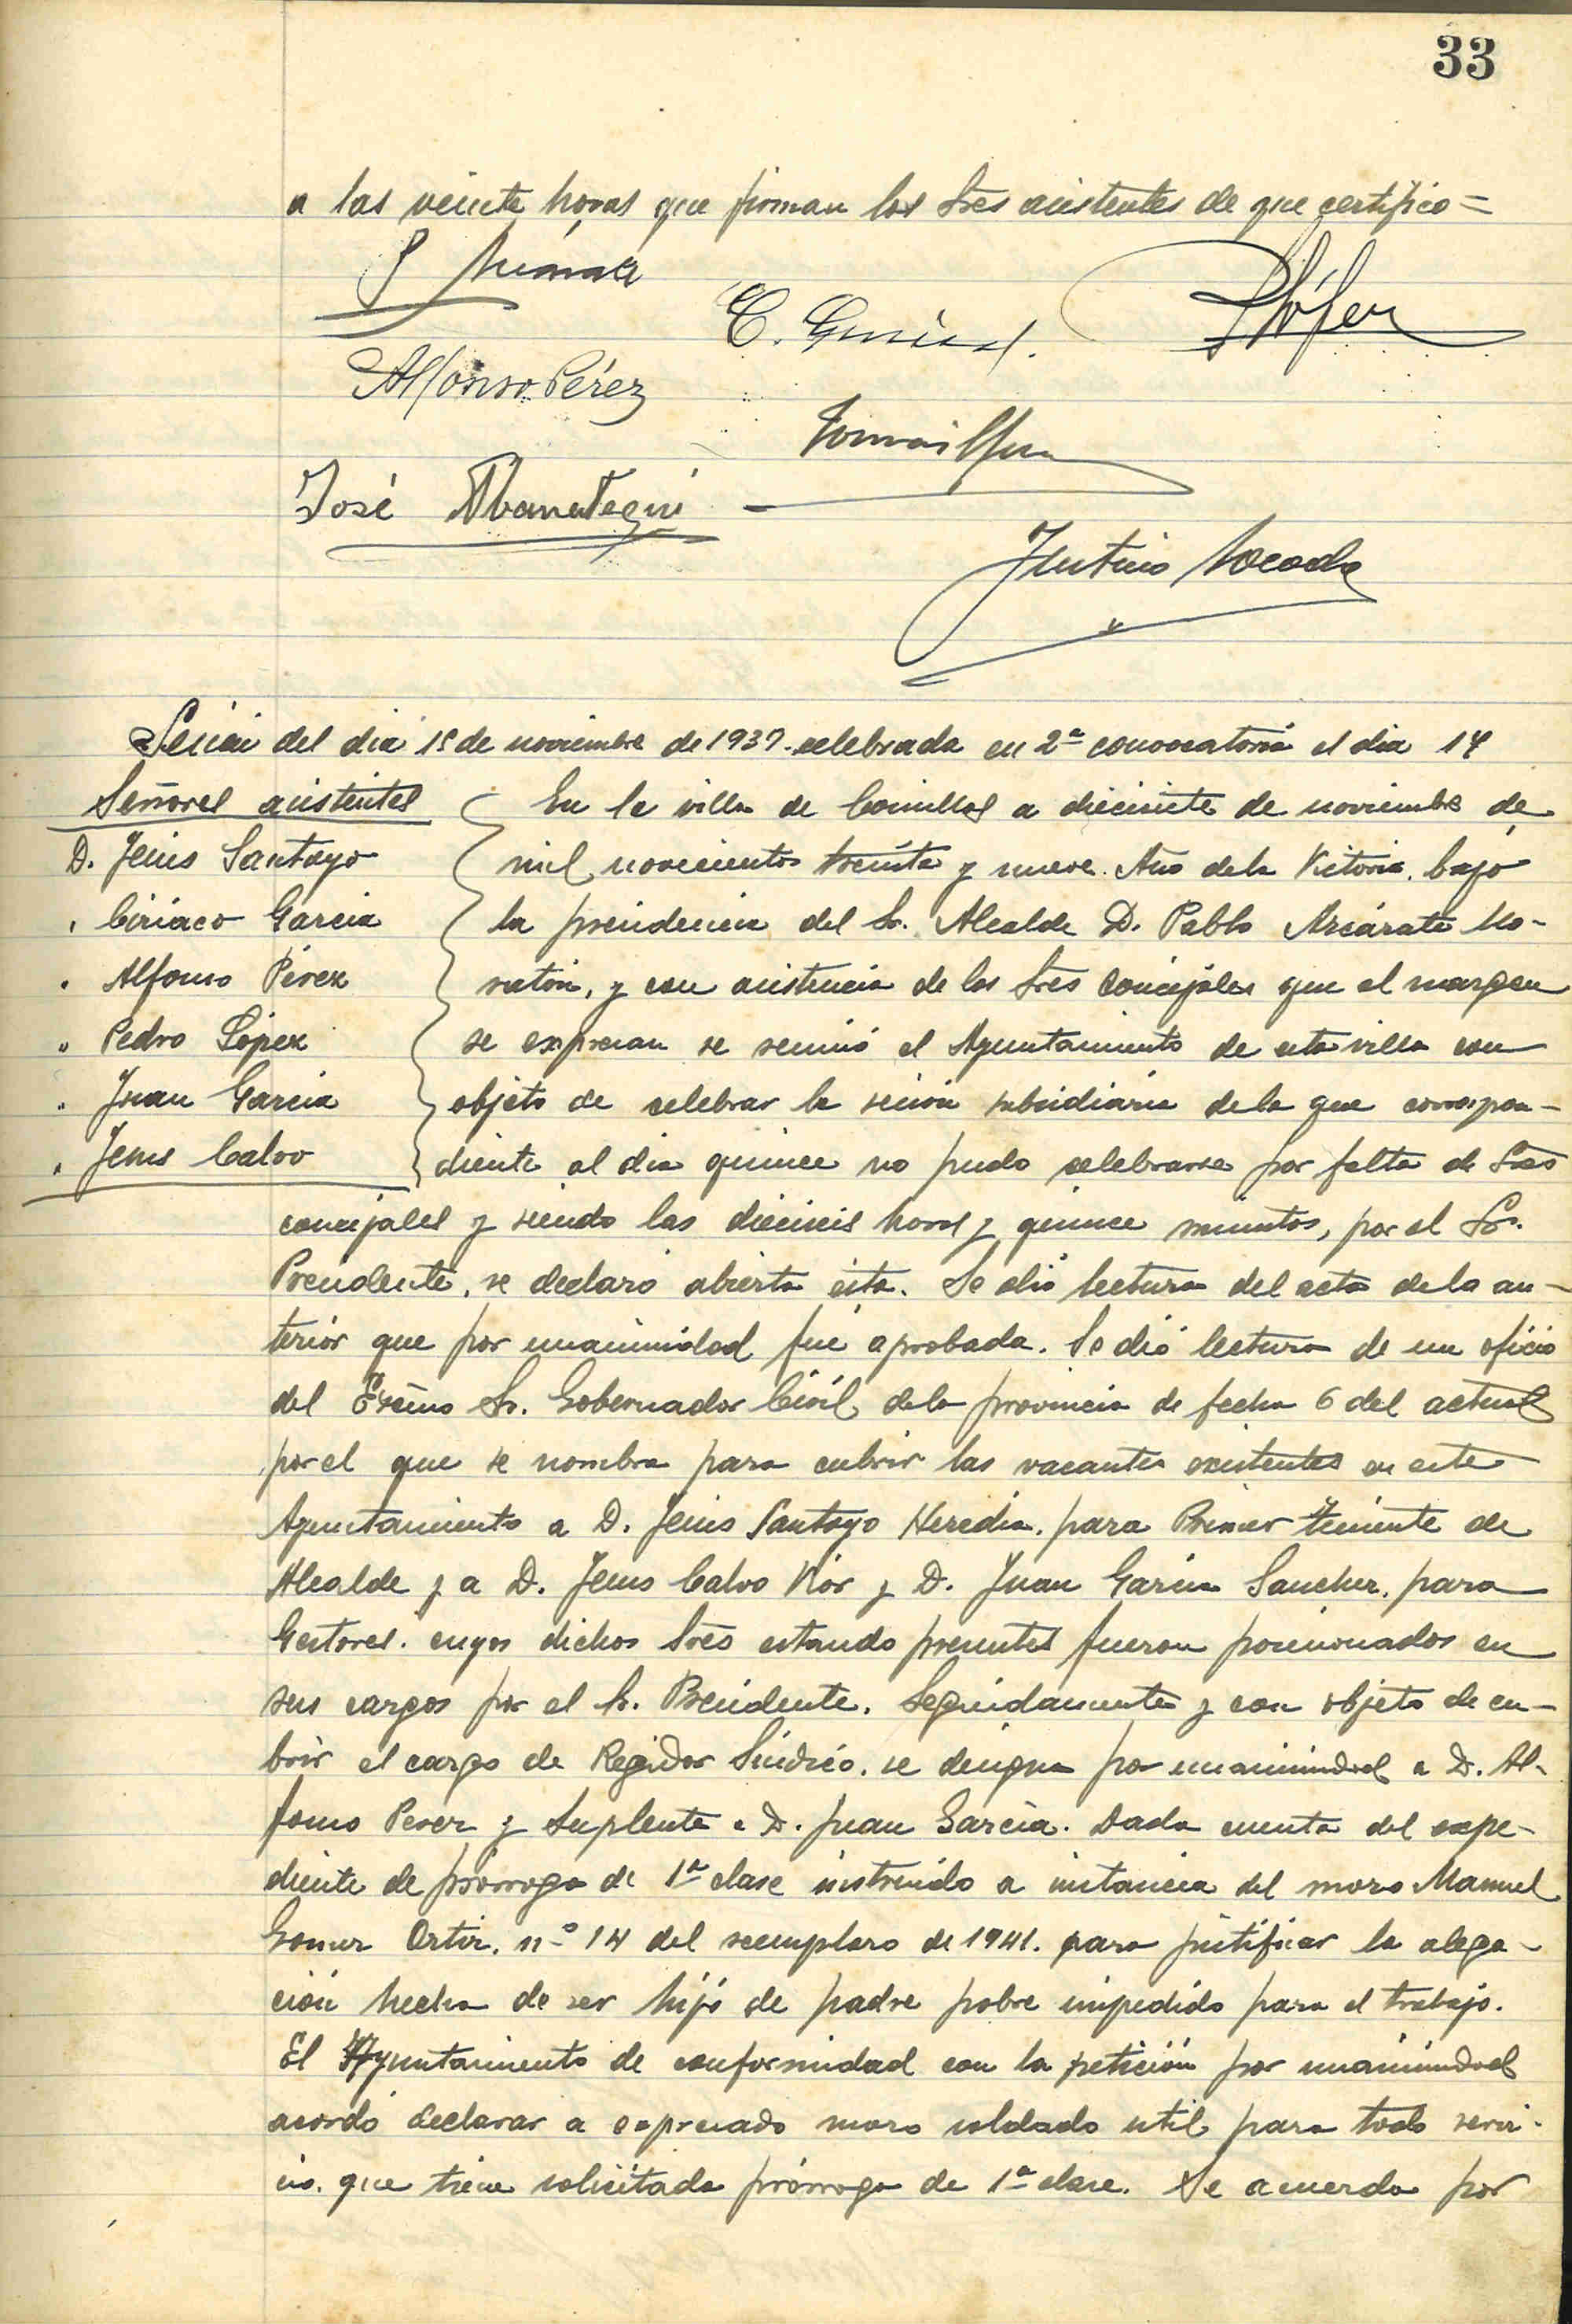 33
a las veinte horas que firman los Sres asistentes de que certifico =
C. García
P. López
Alfonso Pérez
José Amanategui
Sesión del dia 15 de noviembre de 1939. celebrada en 2ª convocatoria el dia 17
Señores asistentes
D. Jesus Santayo
" Ciriaco Garcia
" Alfonso Pérez
" Pedro López
" Juan Garcia
" Jesus Calvo
En la villa de Cornillos a diecisiete de noviembre de
mil novecientos treinta y nueve. Año de la Victoria. bajo
la presidencia del Sr. Alcalde D. Pablo Azcárate Mo-
ratón, y con asistencia de los Sres Concejales que al margen
se expresan se reunió el Ayuntamiento de esta villa con
objeto de celebrar la sesión subsidiaria de la que correspon-
diente al dia quince no pudo celebrarse por falta de Sres
concejales y siendo las dieciseis horas y quince minutos, por el Sr.
Presidente, se declaró abierta ésta. Se dió lectura del acta de la an-
terior que por unanimidad fué aprobada. Se dió lectura de un oficio
del Excmo Sr. Gobernador Civil de la provincia de fecha 6 del actual
por el que se nombra para cubrir las vacantes existentes en este
Ayuntamiento a D. Jesus Santayo Heredia. para Primer teniente de
Alcalde y a D. Jesus Calvo y D. Juan Garcia Sanchez. para
Gestores. cuyos dichos Sres estando presentes fueron posesionados en
sus cargos por el Sr. Presidente. Seguidamente y con objeto de cu-
brir el cargo de Regidor Síndico. se designa por unanimidad a D. Al-
fonso Perez y Suplente a D. Juan Garcia. Dada cuenta del expe-
diente de prórroga de 1ª clase instruido a instancia del mozo Manuel
Gomez Ortiz. nº 14 del reemplazo de 1941. para justificar la alega-
ción hecha de ser hijo de padre pobre impedido para el trabajo.
El Ayuntamiento de conformidad con la petición por unanimidad
acordó declarar a expresado mozo soldado util para todo servi-
cio. que tiene solicitada prórroga de 1ª clase. Se acuerda por